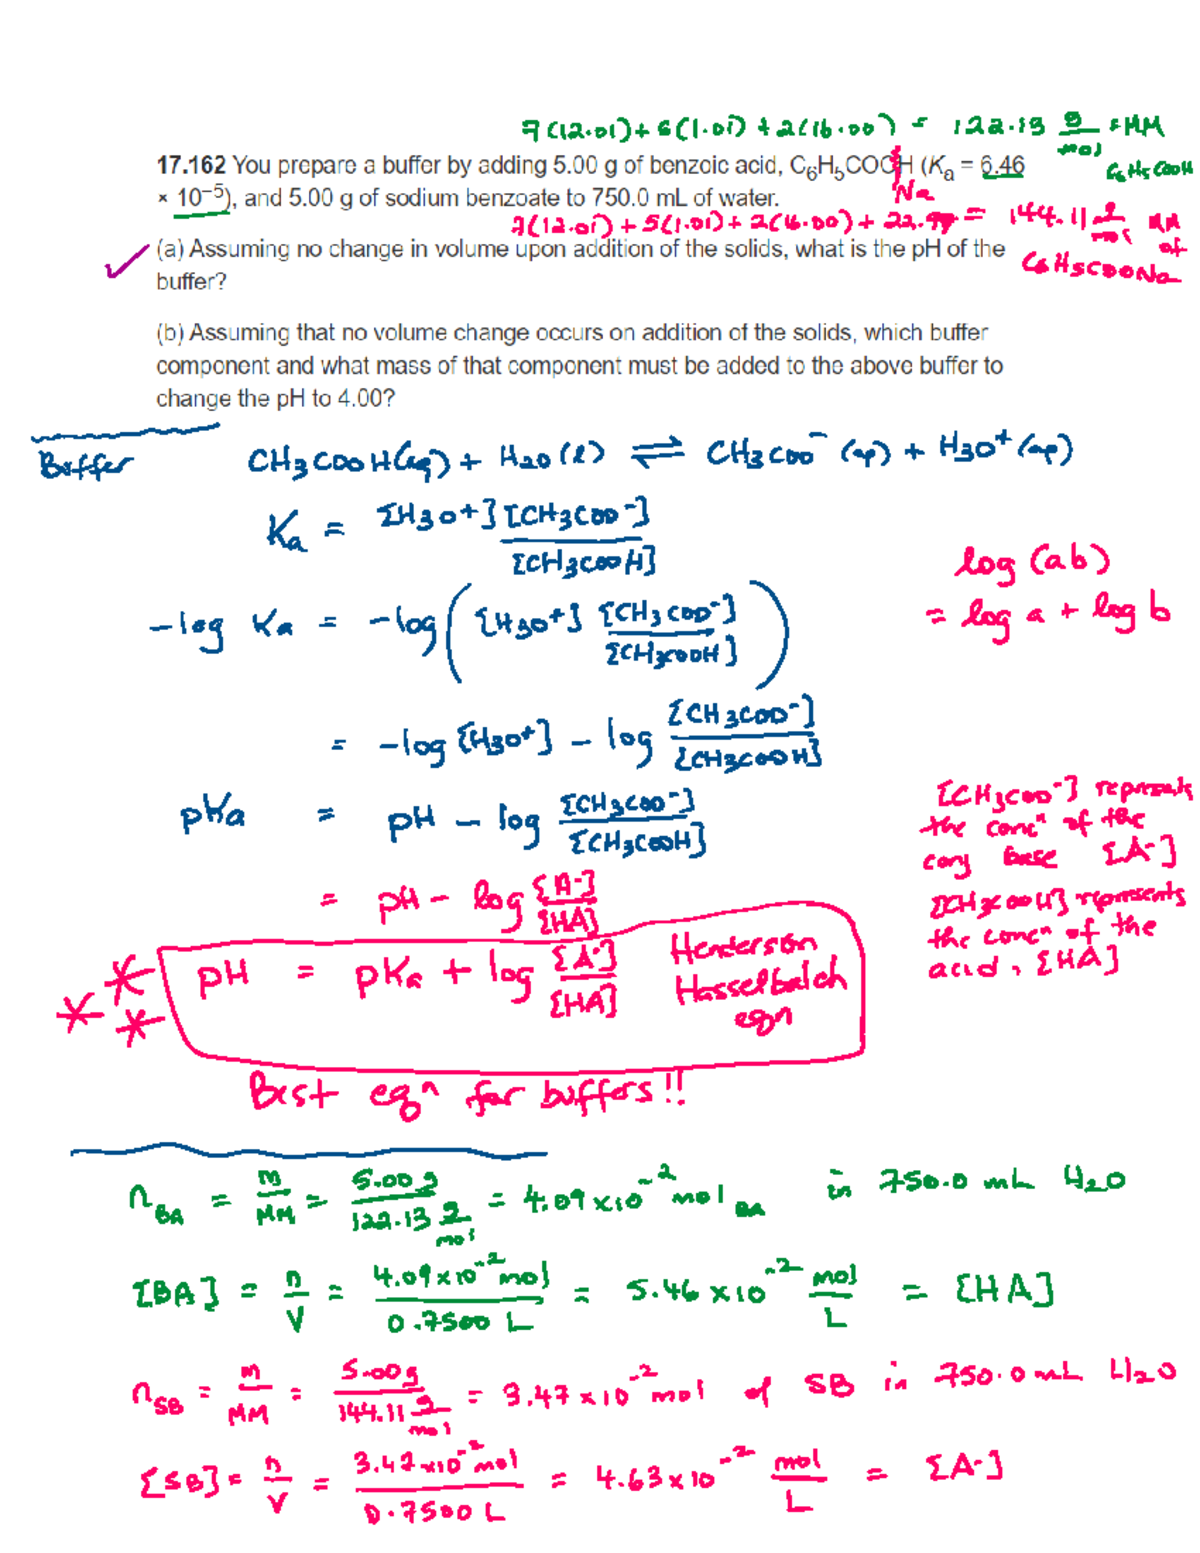 7(12.01) + 6(1.01) + 2(16.00) = 122.13 g/mol = MM C6H5COOH
17.162 You prepare a buffer by adding 5.00 g of benzoic acid, C6H5COOH (Ka = 6.46
Na
× 10−5), and 5.00 g of sodium benzoate to 750.0 mL of water.
7(12.01) + 5(1.01) + 2(16.00) + 22.99 = 144.11 g/mol MM of C6H5COONa
(a) Assuming no change in volume upon addition of the solids, what is the pH of the
buffer?
(b) Assuming that no volume change occurs on addition of the solids, which buffer
component and what mass of that component must be added to the above buffer to
change the pH to 4.00?
Buffer CH3COOH(aq) + H2O(l) ⇌ CH3COO−(aq) + H3O+(aq)
Ka = [H3O+][CH3COO−]/[CH3COOH]
log(ab)
= log a + log b
−log Ka = −log([H3O+] [CH3COO−]/[CH3COOH])
= −log[H3O+] − log [CH3COO−]/[CH3COOH]
pKa = pH − log [CH3COO−]/[CH3COOH]
[CH3COO−] represents
the concn of the
conj base [A−]
[CH3COOH] represents
the concn of the
acid, [HA]
= pH − log [A−]/[HA]
pH = pKa + log [A−]/[HA] Henderson
Hasselbalch
eqn
Best eqn for buffers!!
nBA = m/MM = 5.00g/122.13 g/mol = 4.09×10−2 mol BA in 750.0 mL H2O
[BA] = n/V = 4.09×10−2 mol/0.7500 L = 5.46×10−2 mol/L = [HA]
nSB = m/MM = 5.00g/144.11 g/mol = 3.47×10−2 mol of SB in 750.0 mL H2O
[SB] = n/V = 3.47×10−2 mol/0.7500 L = 4.63×10−2 mol/L = [A−]